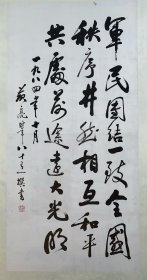 軍民團结一致全國
秩序井然相互和平
共處前途遠大光明
一九八四年十月
八十三
撰書